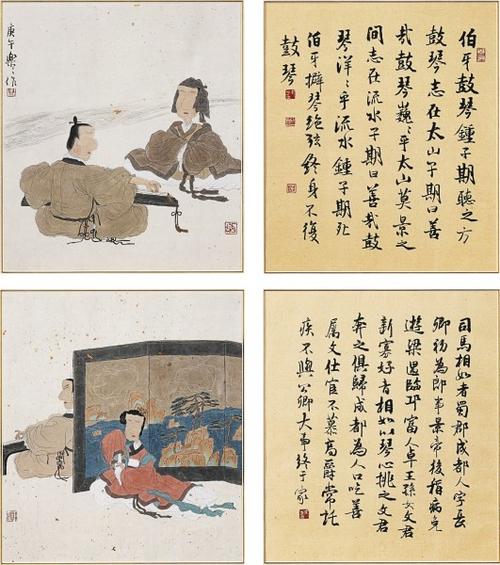 庚午樂〻作
伯牙鼓琴鍾子期聽之方
鼓琴志在太山子期曰善
哉鼓琴巍〻乎太山莫景之
間志在流水子期曰善哉鼓
琴洋〻乎流水鍾子期死
伯牙擗琴絶弦終身不復
鼓琴
司馬相如者蜀郡成都人字長
卿初為郎事景帝後稱病免
遊梁還臨邛富人卓王孫女文君
新寡好音相如以琴心挑之文君
奔之俱歸成都為人口吃善
屬文仕宦不慕高爵常託
疾不與公卿大事終于家